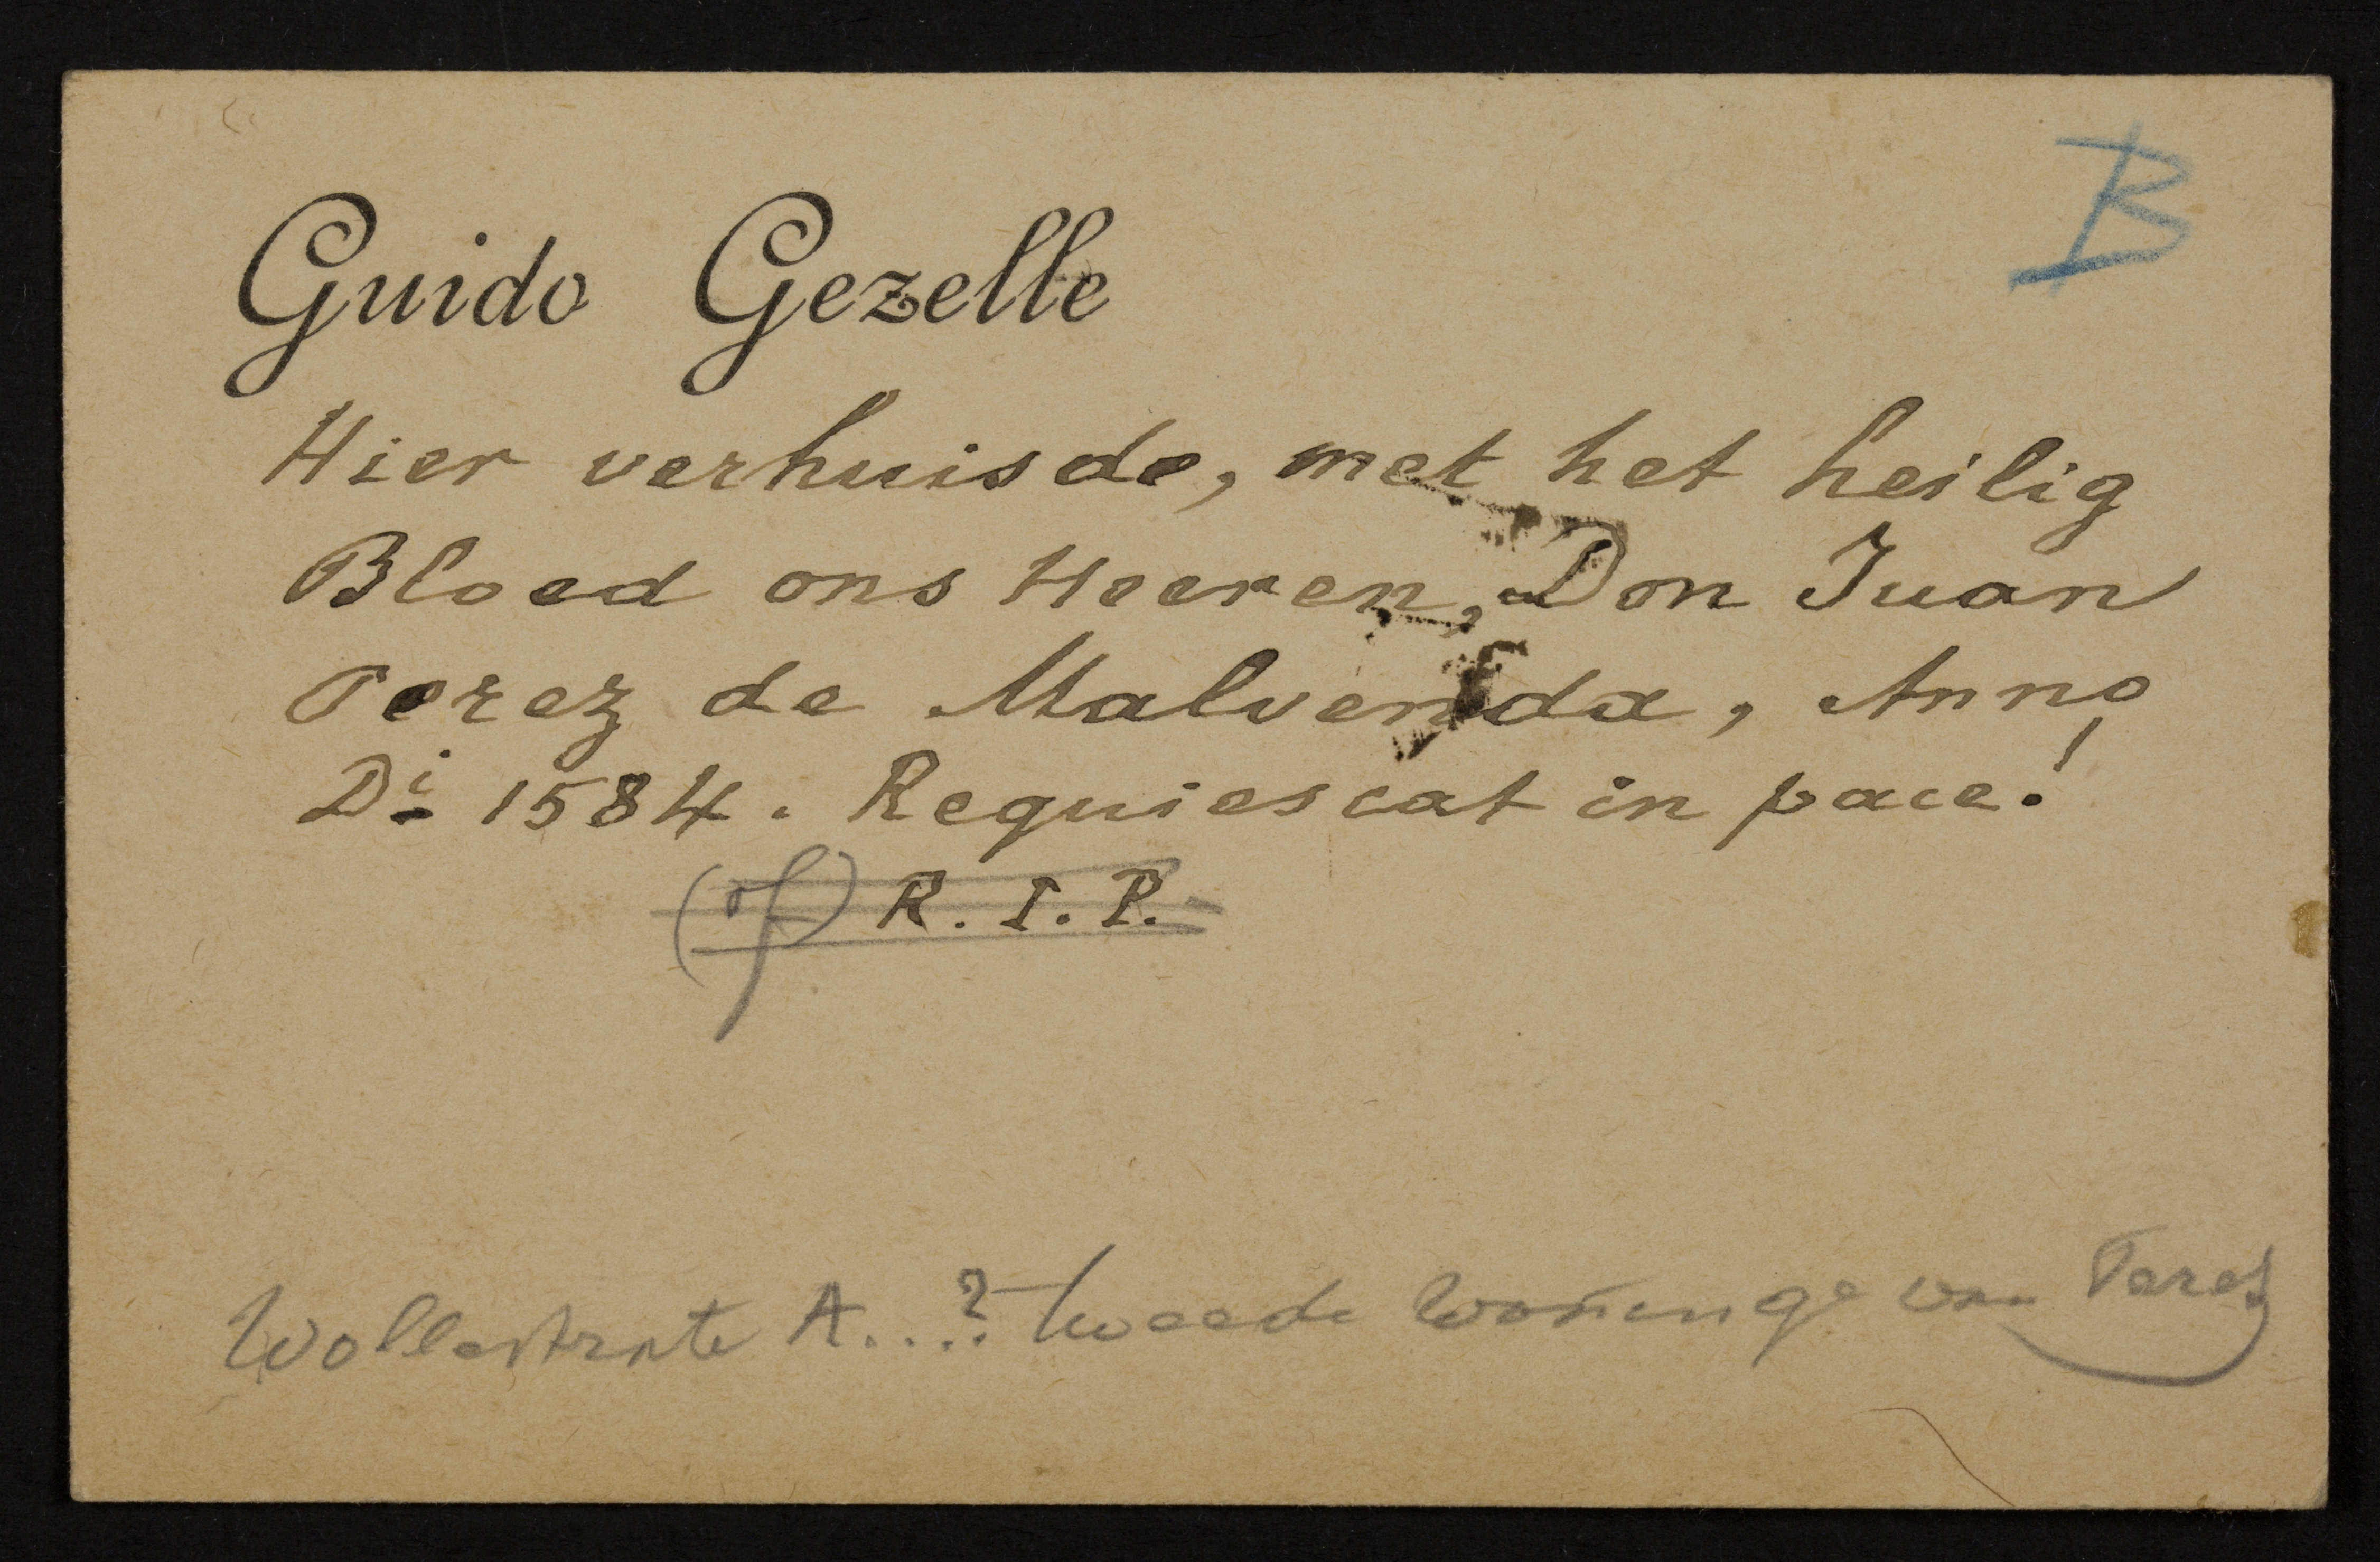 B
Guido Gezelle
Hier verhuisde, met het heilig
Bloed ons Heeren, Don Juan
Perez de Malvenda, Anno
Di 1584. Requiescat in pace!
(of) R. I. P.
Wollestrate A...? tweede wooninge van Perez